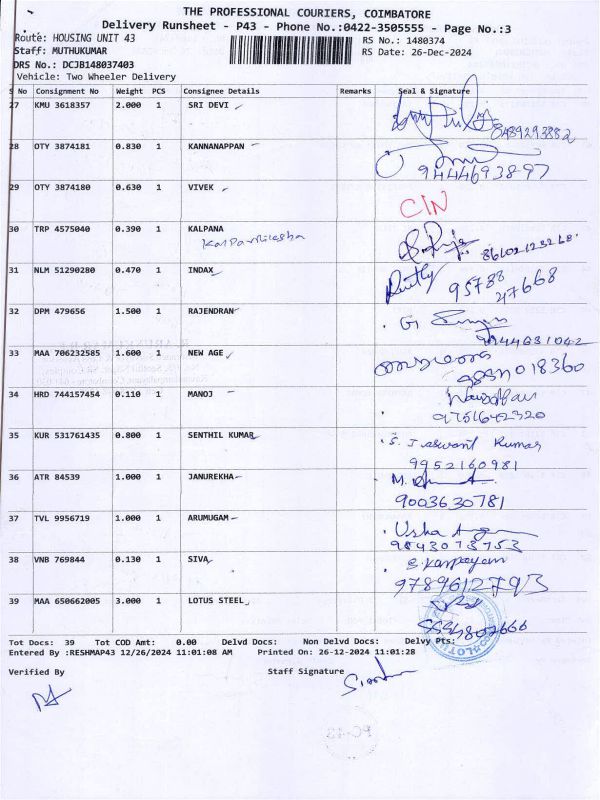 THE PROFESSIONAL COURIERS, COIMBATORE
Delivery Runsheet - P43 - Phone No.:0422-3505555 - Page No.:3
Route: HOUSING UNIT 43
RS No.: 1480374
Staff: MUTHUKUMAR
RS Date: 26-Dec-2024
DRS No.: DCJB148037403
Vehicle: Two Wheeler Delivery
S No Consignment No Weight PCS Consignee Details Remarks Seal & Signature
27 KMU 3618357 2.000 1 SRI DEVI
8489293882
28 OTY 3874181 0.830 1 KANNANAPPAN
9444693897
29 OTY 3874180 0.630 1 VIVEK
C/N
30 TRP 4575040 0.390 1 KALPANA
31 NLM 51290280 0.470 1 INDAX
95788
47668
32 DPM 479656 1.500 1 RAJENDRAN
33 MAA 706232585 1.600 1 NEW AGE
34 HRD 744157454 0.110 1 MANOJ
9751642320
35 KUR 531761435 0.800 1 SENTHIL KUMAR
S. Jaswant Kumar
9952160981
36 ATR 84539 1.000 1 JANUREKHA
9003630781
37 TVL 9956719 1.000 1 ARUMUGAM
Usha
9843073753
38 VNB 769844 0.130 1 SIVA
39 MAA 650662005 3.000 1 LOTUS STEEL
Tot Docs: 39 Tot COD Amt: 0.00 Delvd Docs: Non Delvd Docs: Delvy Pts:
Entered By :RESHMAP43 12/26/2024 11:01:08 AM Printed On: 26-12-2024 11:01:28
Verified By Staff Signature